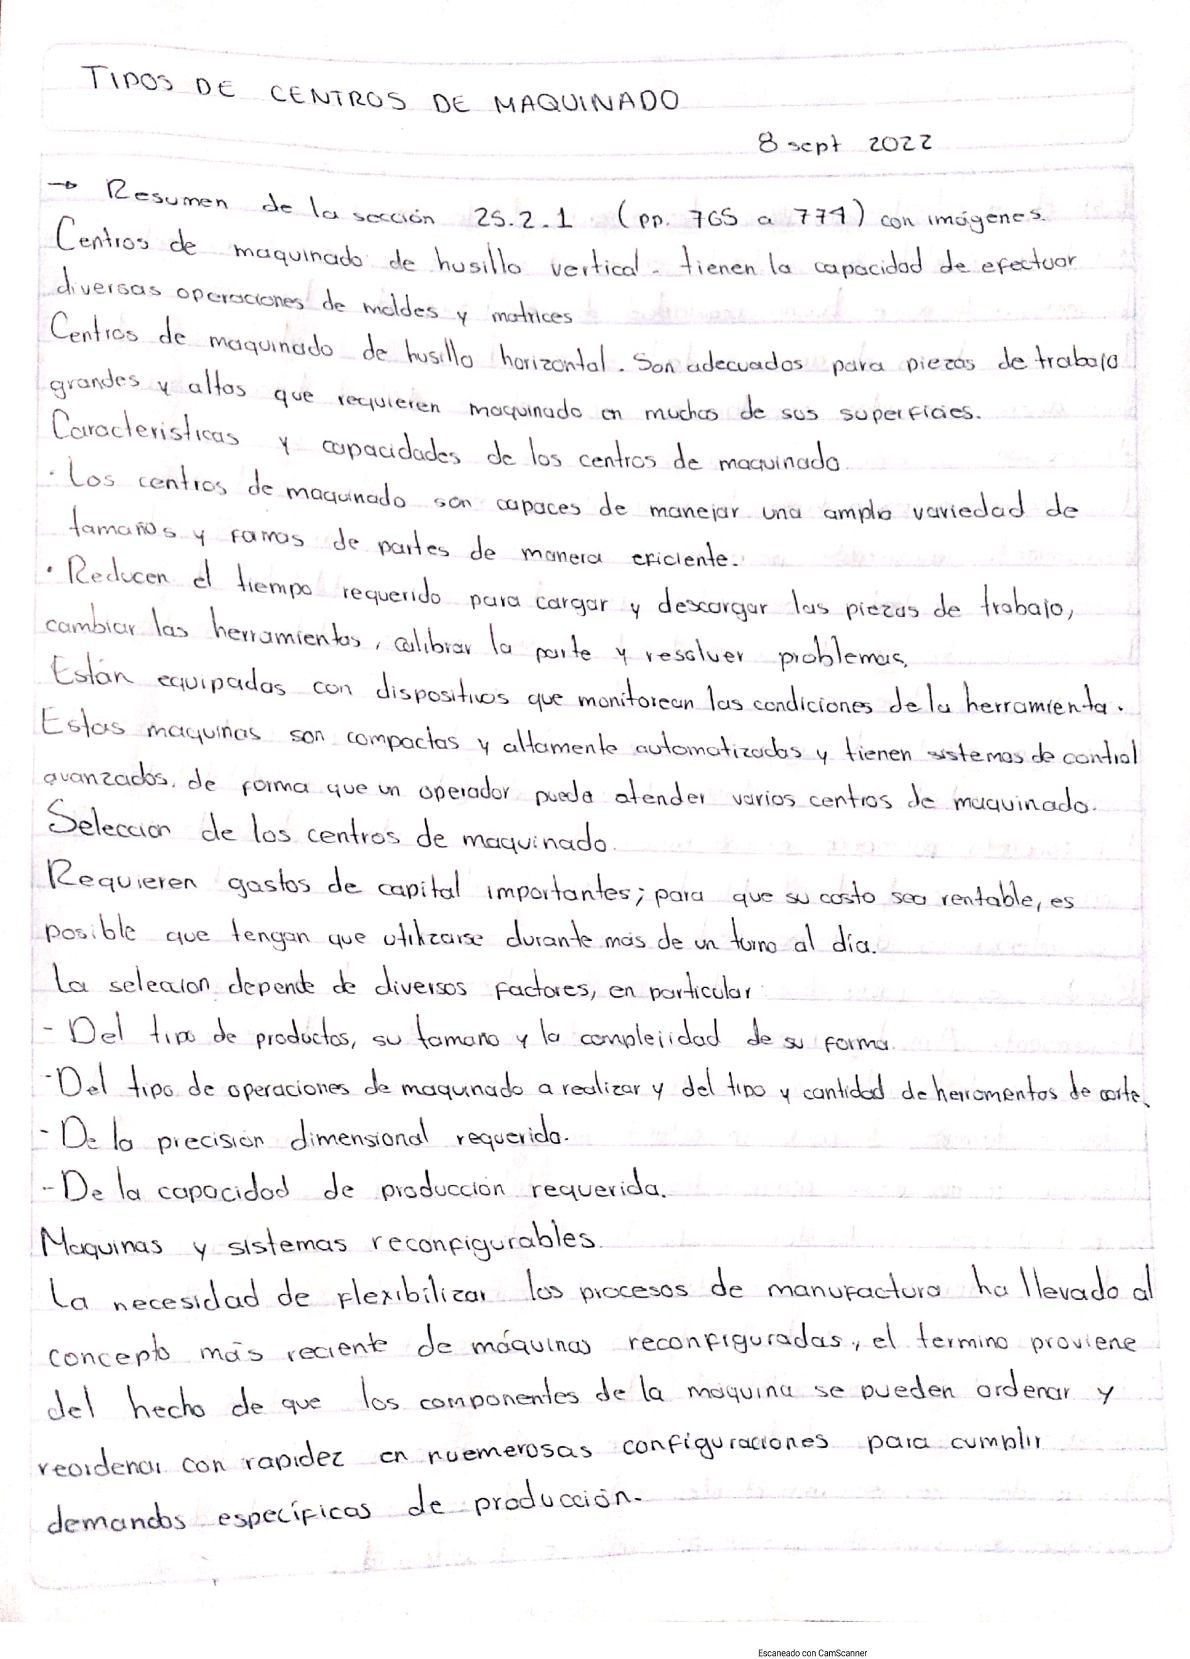 TIPOS DE CENTROS DE MAQUINADO
8 sept 2022
→ Resumen de la sección 25.2.1 (pp. 765 a 774) con imágenes.
Centros de maquinado de husillo vertical. tienen la capacidad de efectuar
diversas operaciones de moldes y matrices
Centros de maquinado de husillo horizontal. Son adecuados para piezas de trabajo
grandes y altas que requieren maquinado en muchas de sus superficies.
Caracteristicas y capacidades de los centros de maquinado.
· Los centros de maquinado son capaces de manejar una amplia variedad de
tamaños y formas de partes de manera eficiente.
· Reducen el tiempo requerido para cargar y descargar las piezas de trabajo,
cambiar las herramientas, calibrar la parte y resolver problemas.
Están equipadas con dispositivos que monitorean las condiciones de la herramienta.
Estas maquinas son compactas y altamente automatizadas y tienen sistemas de control
avanzados. de forma que un operador puede atender varios centros de maquinado.
Selección de los centros de maquinado.
Requieren gastos de capital importantes; para que su costo sea rentable, es
posible que tengan que utilizarse durante más de un turno al día.
La selección depende de diversos factores, en particular:
- Del tipo de productos, su tamaño y la complejidad de su forma.
- Del tipo de operaciones de maquinado a realizar y del tipo y cantidad de herramentas de corte.
- De la precisión dimensional requerida.
- De la capacidad de producción requerida.
Maquinas y sistemas reconfigurables.
La necesidad de flexibilizar los procesos de manufactura ha llevado al
concepto más reciente de máquinas reconfiguradas, el termino proviene
del hecho de que los componentes de la máquina se pueden ordenar y
reordenar con rapidez en nuemerosas configuraciones para cumplir
demandas específicas de producción.
Escaneado con CamScanner